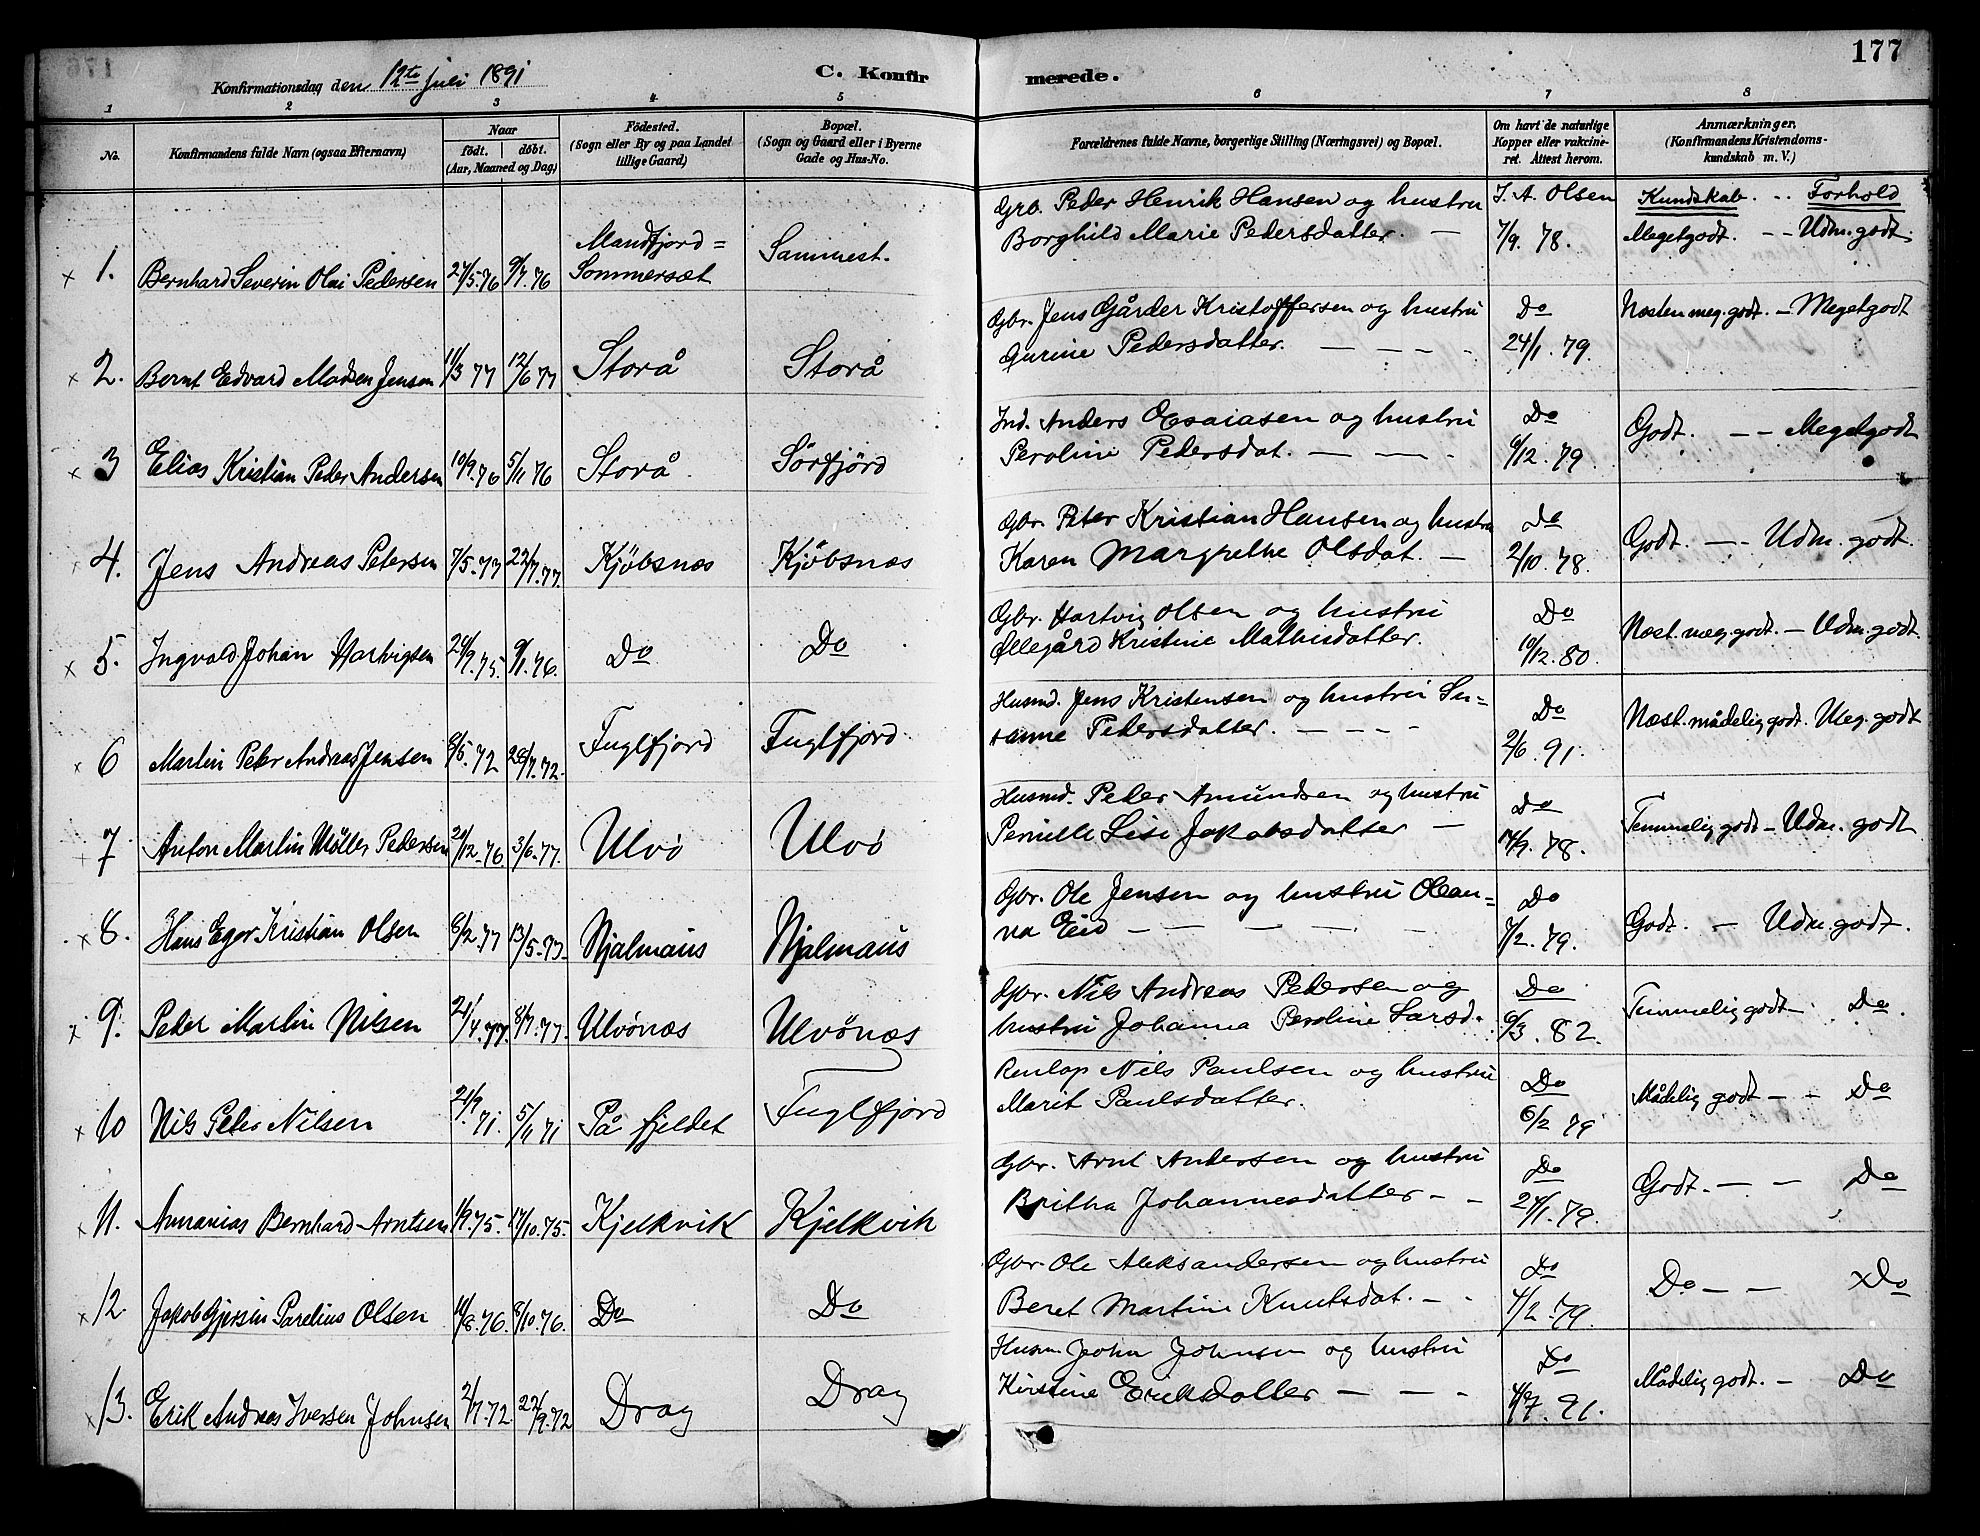 177
Konfirmationsdag den 12te juli 1891
C. Konfirmerede.
1 2 3 4 5 6 7 8
No. | Konfirmandens fulde Navn (ogsaa Efternavn) | Naar født. døbt. (Aar, Maaned og Dag) | Fødested. (Sogn eller By og paa Landet tillige Gaard) | Bopæl. (Sogn og Gaard eller i Byerne Gade og Hus-No.) | Forældrenes fulde Navne, borgerlige Stilling (Næringsvei) og Bopæl. | Om havt de naturlige Kopper eller vakcineret. Attest herom. | Anmærkninger. (Konfirmandens Kristendomskundskab m. V.)
Kundskab. .. Forhold
× 1. Bernhard Severin Olai Pedersen | 27/5.76 | 9/7.76 | Mandfjord=Sommersæt | Sammest. | Grb. Peder Henrik Hansen og hustru Borghild Marie Pedersdatter. — | J. A. Olsen 7/9.78. | Megetgodt. — Udm. godt.
× 2. Bernt Edvard Madsen Jensen | 11/3 77 | 12/6 77 | Storå | Storå | Gbr. Jens Gårder Kristoffersen og hustru Gurine Pedersdatter. — — — | Do 24/1.79. | Næsten meg. godt. — Megetgodt
× 3 Elias Kristian Peder Andersen | 10/9.76 | 5/11 76 | Storå | Sørfjörd | Ind. Anders Esaiasen og hustru Peroline Pedersdat. — — | Do 6/12.79. | Godt. — — Megetgodt
4. Jens Andreas Petersen | 7/5.77 | 22/7.77. | Kjøbsnæs | Kjøbsnæs | Gbr. Peter Kristian Hansen og hustru Karen Margrethe Olsdat. — | Do 2/10.78. | Godt. — Udm. godt.
× 5. Ingvald Johan Hartvigsen | 24/9.75. | 9/1.76. | Do | Do | Gbr. Hartvig Olsen og hustru Øllegård Kristine Mathisdatter. | Do 10/12.80. | Næst. meg. godt. — Udm. godt.
× 6 Martin Peter Andreas Jensen | 8/5.72 | 28/7.72. | Fuglfjord | Fuglfjord | Husmd. Jens Kristensen og hustru Susanne Pedersdatter. — — — | Do 2/6.91. | Næst. mådelig godt. Meg. godt
7. Anton Martin Møller Pedersen | 21/12.76 | 3/6.77. | Ulvø | Ulvø | Husmd. Peder Amundsen og hustru Pernille Lise Jakobsdatter — | Do 14/9.78. | Temmelig godt — Udm. godt
× 8. Hans Eger Kristian Olsen | 8/2.77 | 13/5.77. | Hjalmaus | Hjalmaus | Gbr. Ole Jensen og hustru Oleanna Eid — — — — | Do 7/2.79. | Godt. — Udm. godt.
× 9. Peder Martin Nilsen | 21/4.77. | 8/7.77. | Ulvönæs | Ulvönæs | Gbr. Nils Andreas Pedersen og hustru Johanna Peroline Larsd. | Do 6/3.82. | Temmelig godt — Do.
× 10 Nils Peter Nilsen | 21/9.71. | 5/11 71 | På fjeldet | Fuglfjord | Renlap Nils Paulsen og hustru Marit Paulsdatter. | Do 6/2 79 | Mådelig godt — - Do
× 11. Annanias Bernhard Arntsen | 1/9.75. | 17/10.75. | Kjelkvik | Kjelkvik | Gbr. Arnt Andersen og hustru Britha Johannesdatter — — | Do 24/1.79. | Godt. — — Do
× 12 Jakob Gjersin Parelius Olsen | 14/8.76. | 8/10.76. | Do | Do | Gbr. Ole Aleksandersen og hustru Beret Martine Knutsdat. — | Do 7/2.79. | Do — — × Do
× 13. Erik Andreas Iversen Johnsen | 2/7.72. | 22/9.72 | Drag | Drag | Husm. John Johnsen og hustru Kirstine Eriksdatter — — - | Do 4/7.91. | Mådelig godt. — Do